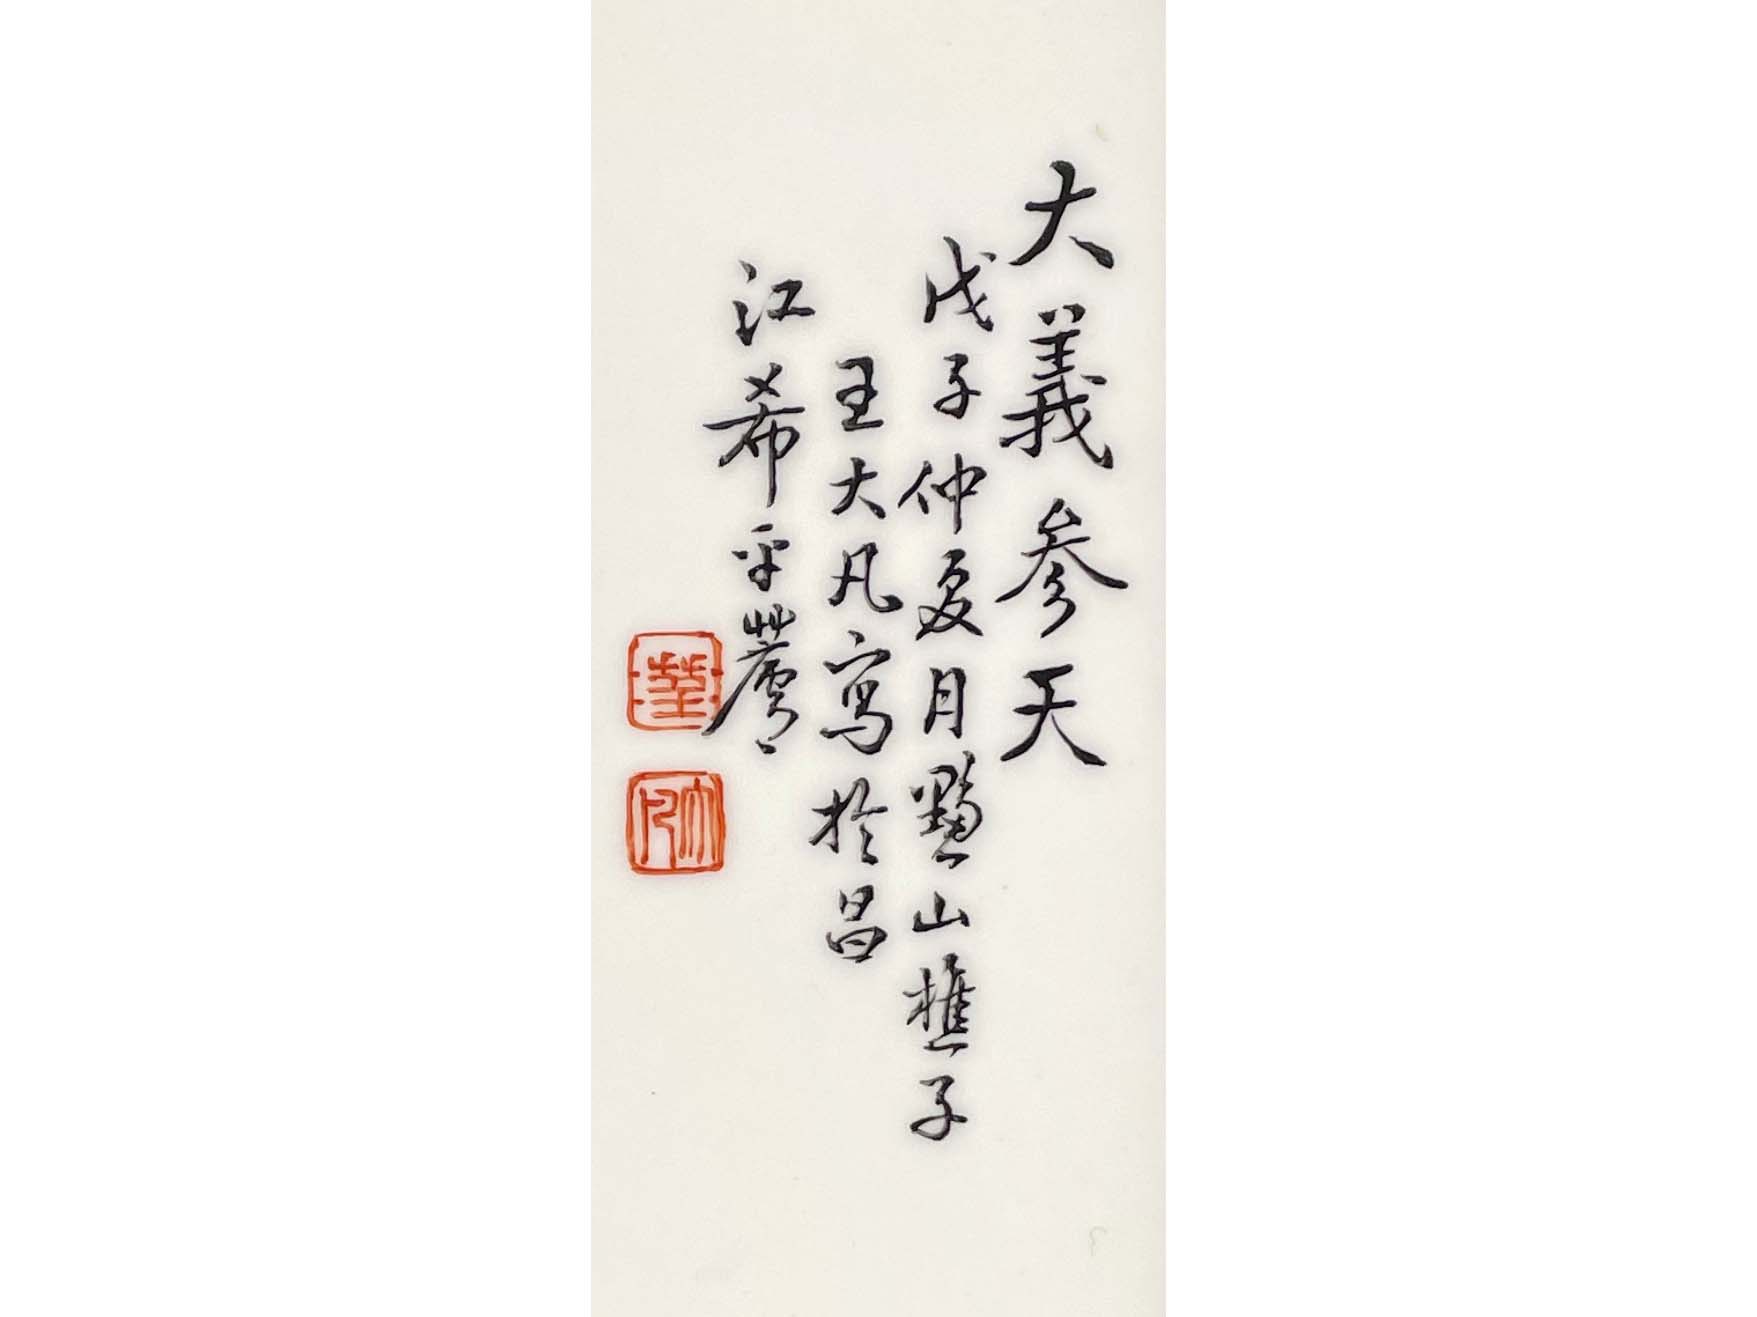 大義參天
戊子仲夏月黟山樵子
王大凡寫於昌
江希平草廬
大凡